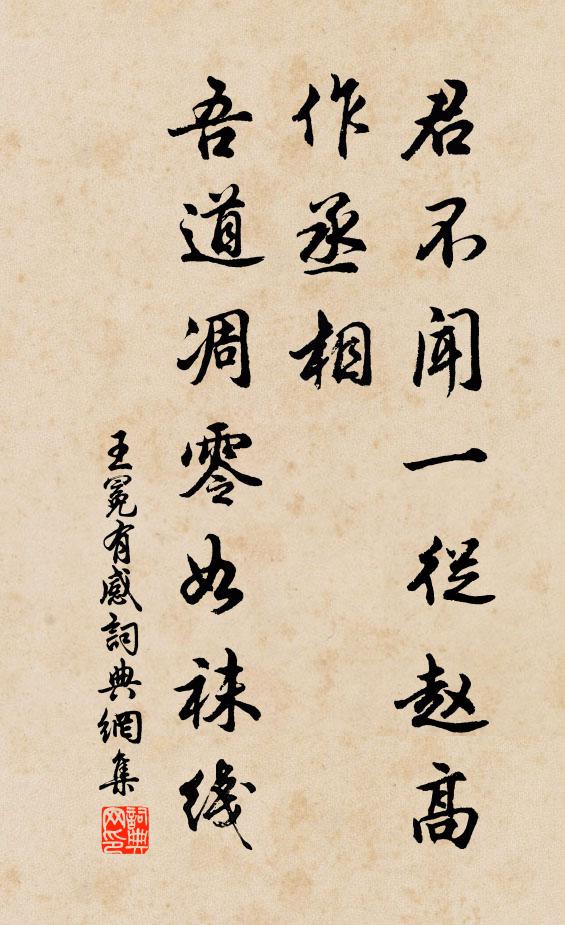 君不闻一从赵高
作丞相
吾道凋零如袜线
王冕有感詞典網集
詞典网印